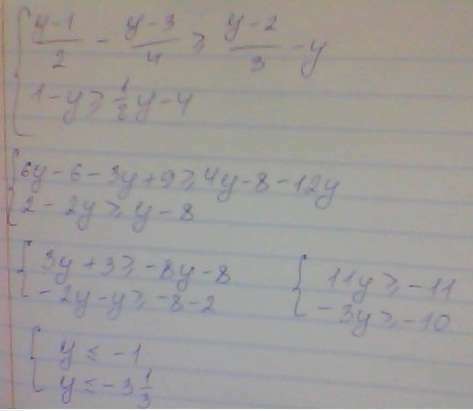 { (y-1)/2 - (y-3)/4 ≥ (y-2)/3 - y
1-y ≥ 1/2 y - 4
{ 6y-6-3y+9 ≥ 4y-8-12y
2-2y ≥ y-8
{ 3y+3 ≥ -8y-8 { 11y ≥ -11
-2y-y ≥ -8-2 -3y ≥ -10
{ y ≤ -1
y ≤ -3 1/3